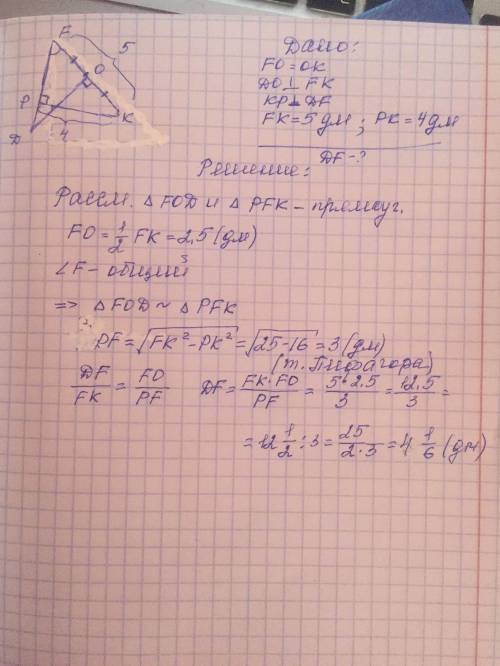 F
5
O
P
K
4
D
Дано:
FO = OK
DO ⊥ FK
KP ⊥ DF
FK = 5 дм ; PK = 4 дм
DF - ?
Решение:
Рассм. △ FOD и △ PFK - прямоуг.
FO = 1/2 FK = 2,5 (дм)
∠F - общий
=> △ FOD ~ △ PFK
PF = √(FK² - PK²) = √(25 - 16) = 3 (дм)
(т. Пифагора)
DF/FK = FO/PF DF = FK·FO/PF = 5·2,5/3 = 12,5/3 =
= 12 1/2 : 3 = 25/2·3 = 4 1/6 (дм)